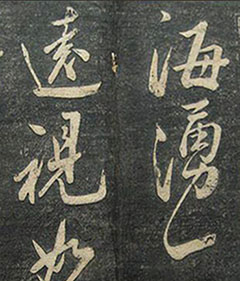 海湧
遠視如